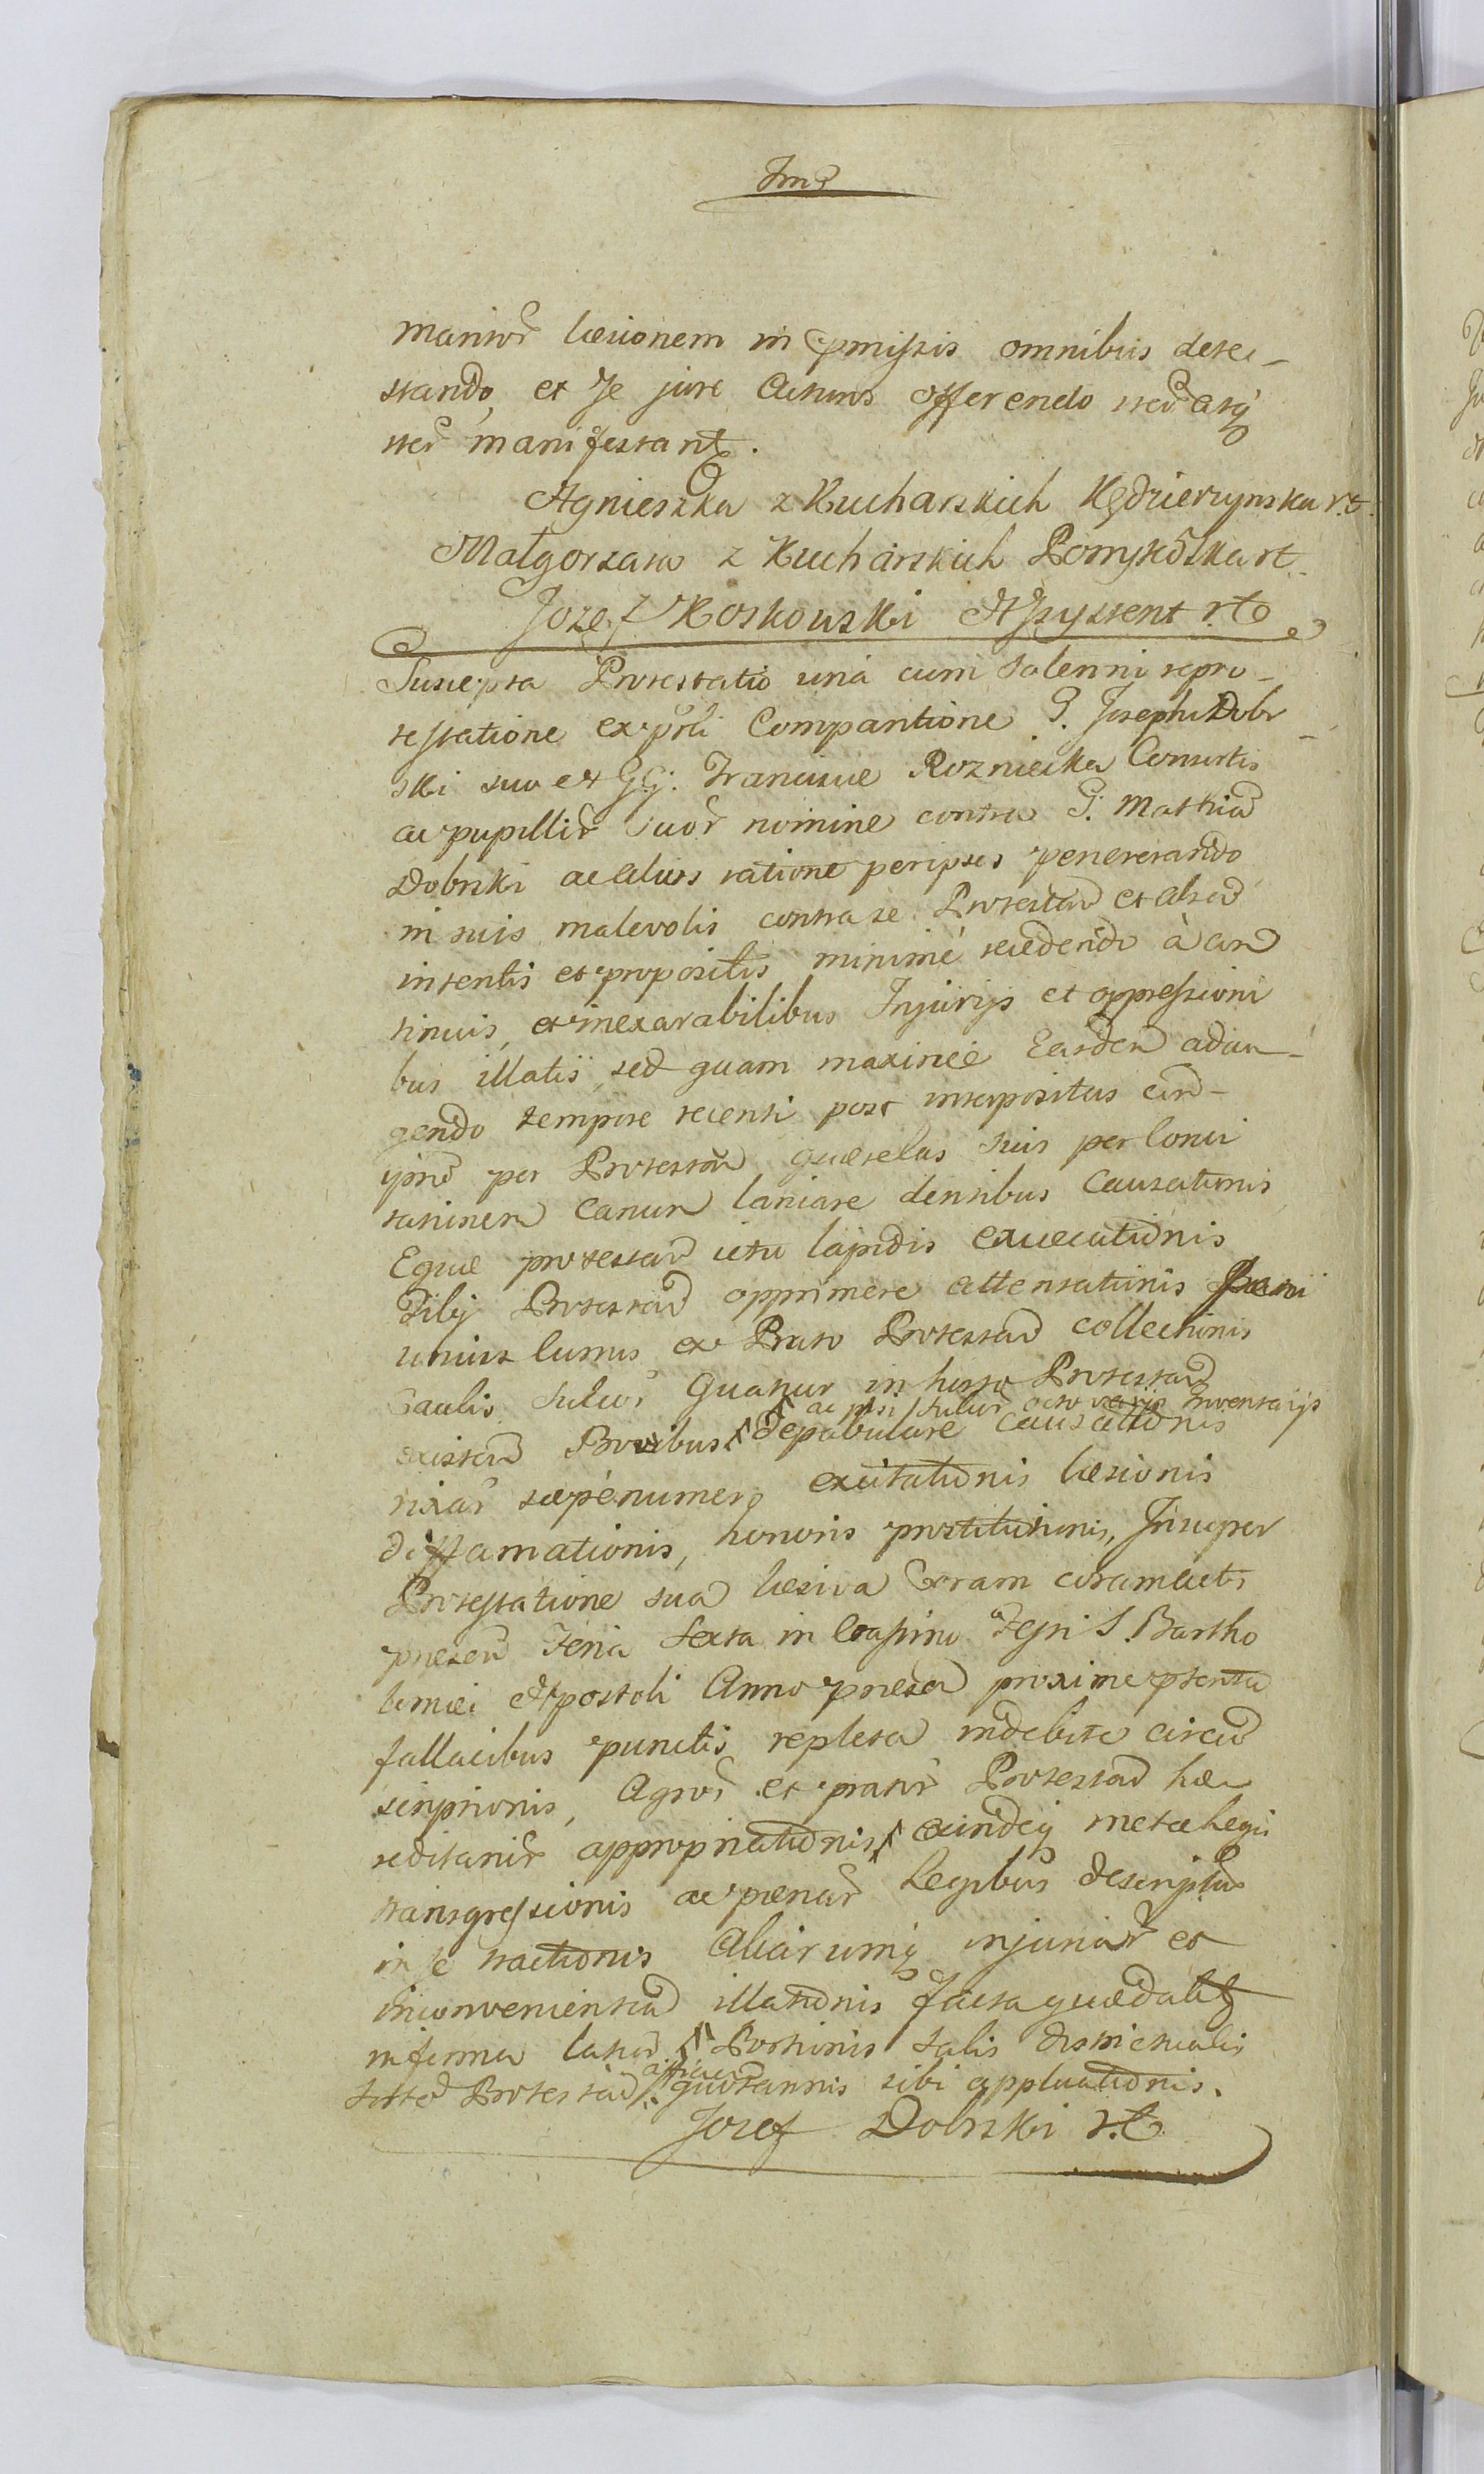 manior læsionem in pmissis omnibus dete-
stando, et se jure acturos offerendo iter atq
iter manifestant.
Agnieszka z Kucharskich Kędzierzynska r.t.
Małgorzata z Kucharskich Pomykoska rt
Jozef Koskowski Assystent r.t.
Suscepta Protestatio una cum solenni repro-
testatione ex psli Compantione G. Josephi Dobr-
ski suo et GG: Francisce Rozniecka Consortis
ac pupillir suor nomine contra G: Mathia
Dobrski ac alios ratione per ipsos
in suis malevolis contra se Protestan et
intentis et propositis minimè recedendo à con
tinuis, et inexarabilibus Injurijs et oppressioni
bus illatis, sed quam maximè Easdem adau-
gendo tempore recenti post interpositas
per Protestan quærelas suis per
Canum laniare dentibus Causationis
Equæ protestan ictu lapidis excæcationis
Filij Protestan opprimere attentationis
unius currus ex Prato Protestan collectionis
Caulis Quatuor in horto Protestan
existen Bovibus ac octo varijs Inventarijs
depabulare causationis
rixar sæpenumero excitationis læsionis
diffamationis, honoris prostitutionis, Insuper
Protestatione sua læsiva Coram
præsen Feria Sexta in Crastino Festi S. Bartho
lomæi Apostoli Anno præsen proxime
fallacibus punctis repleta indebite circum
scriptionis, Agror et prator Protestan hæ
reditarior appropriationis exindeq metæ Legis
transgressionis ac pænar Legibus descriptar
in se tractionis Aliarumq injuriar et
inconvenientiar illationis facta
in forma latiori Portionis salis districtualis
Protestan quotannis sibi applicationis.
Jozef Dobrski r.t.